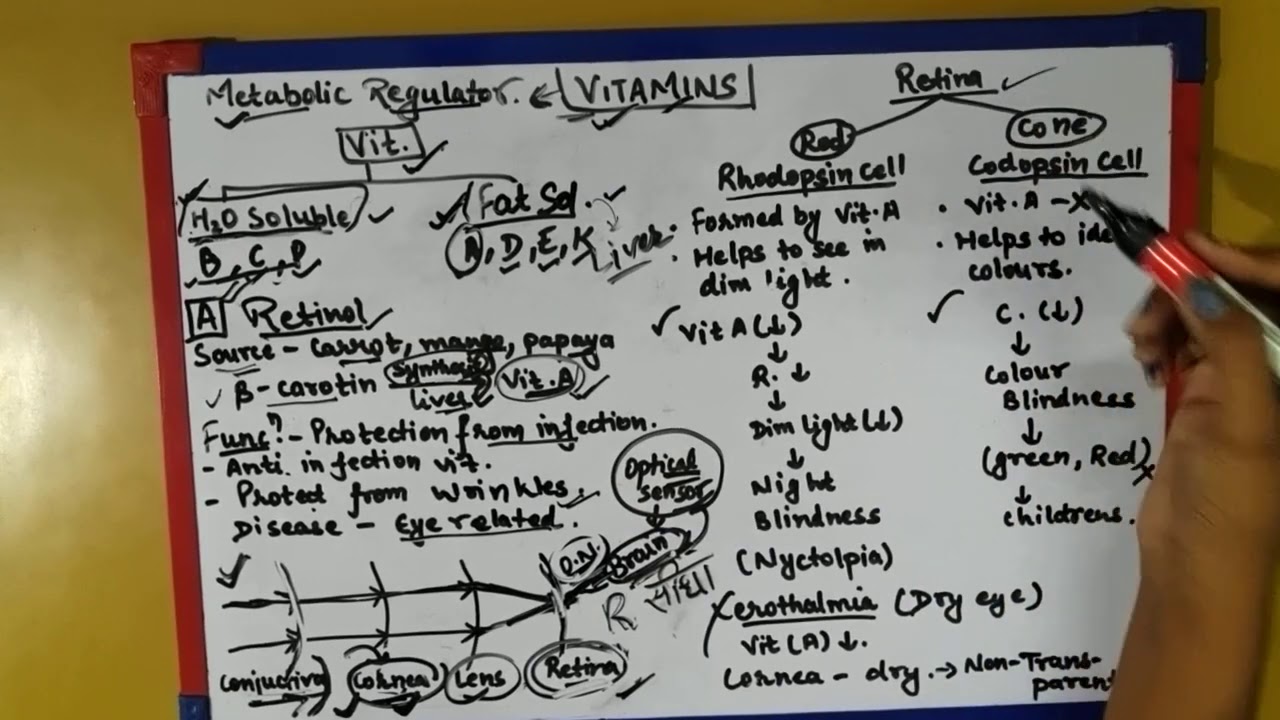 Metabolic Regulator. ← VITAMINS
Vit.
H2O Soluble
B, C, P
Fat Sol.
A, D, E, K
Liver
A Retinol
Source - Carrot, mango, papaya
β-carotin synthesis Vit.A
liver
Func? - Protection from infection.
- Anti. infection vit.
- Protect from Wrinkles.
Disease - Eye related.
Optical
Sensor
O.N.
Brain
R
Conjuctiva
Cornea
Lens
Retina
Retina
Rod
Rhodopsin Cell
• Formed by Vit.A
• Helps to see in
dim light.
Vit A (↓)
↓
R. ↓
↓
Dim light (↓)
↓
Night
Blindness
(Nyctolpia)
Cone
Codopsin Cell
• Vit.A - X
• Helps to ide
colours.
C. (↓)
↓
Colour
Blindness
↓
(green, Red)
↓
childrens.
Xerothalmia (Dry eye)
Vit (A) ↓.
Cornea - dry. → Non-Trans-
parent